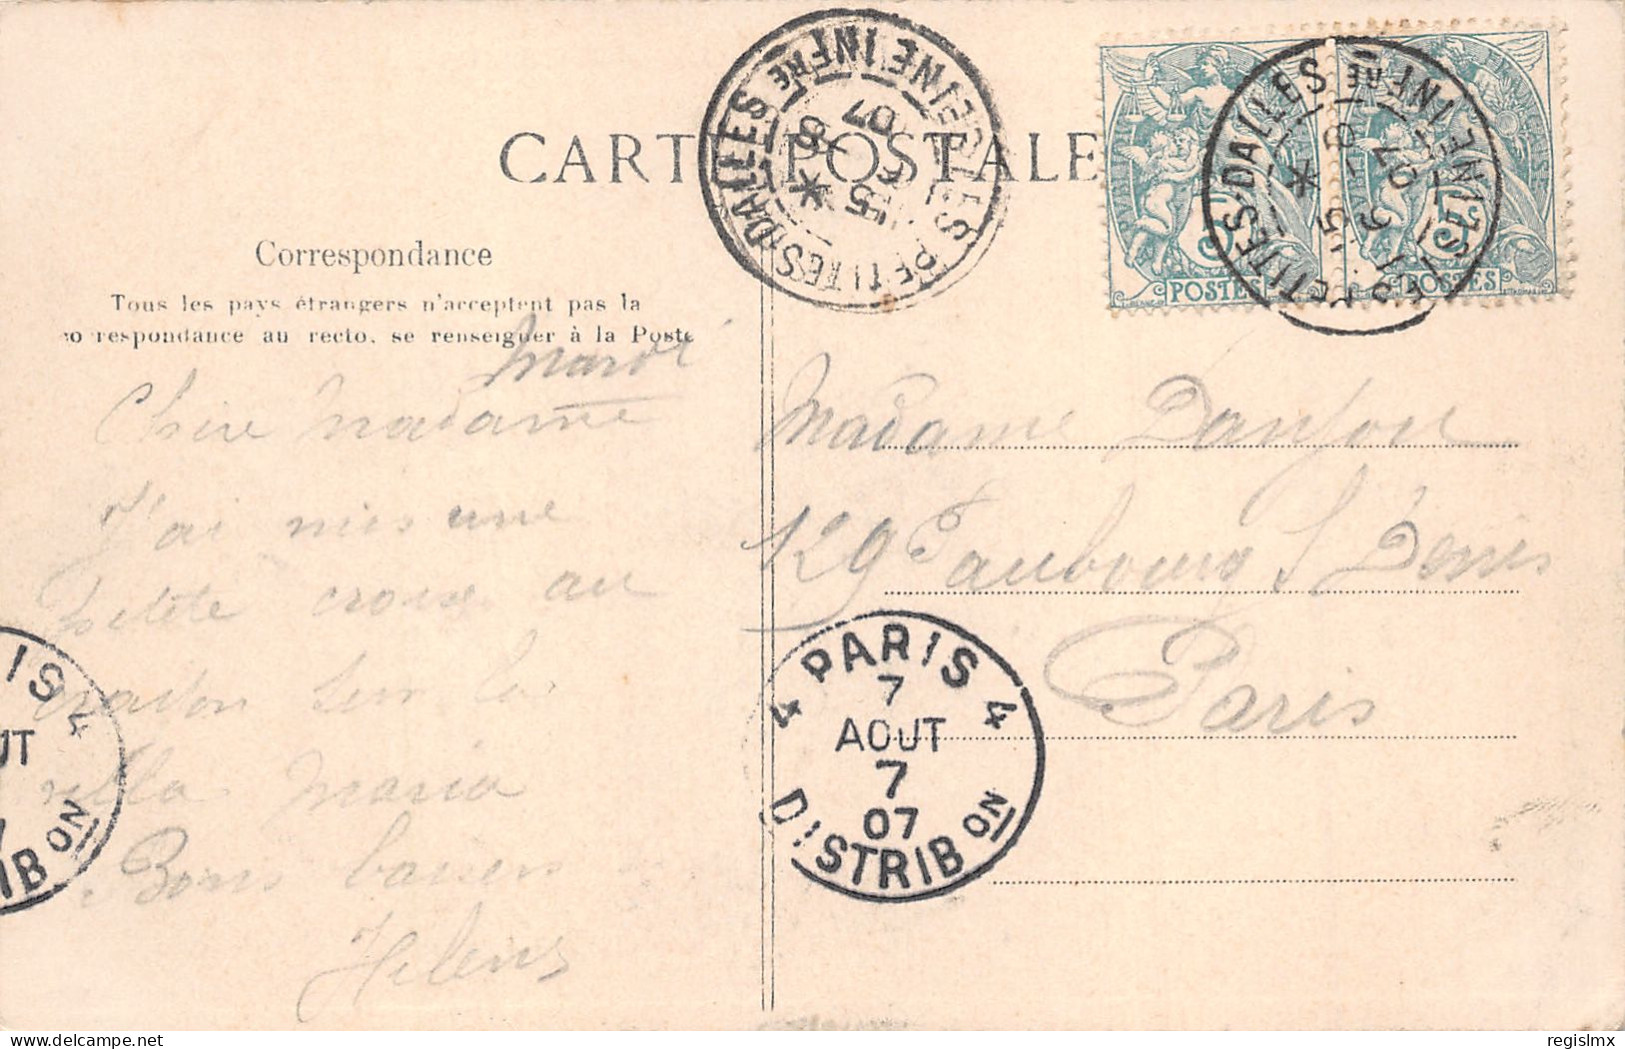 CARTE POSTALE
Correspondance
Tous les pays étrangers n'acceptent pas la
correspondance au recto, se renseigner à la Poste
Mardi
Chère Madame
J'ai mis une
petite croix au
sur la
villa Maria
Bons baisers
LES PETITES-DALLES SEINE INFRE
15
5
8
07
LES PETITES-DALLES SEINE INFRE
15
6
8
07
5
POSTES
5
POSTES
Madame
129 Faubourg St Denis
Paris
PARIS 4
7
AOUT
7
07
DISTRIBON
4
IS 4
UT
7
IBON
delcampe.net
regislmx